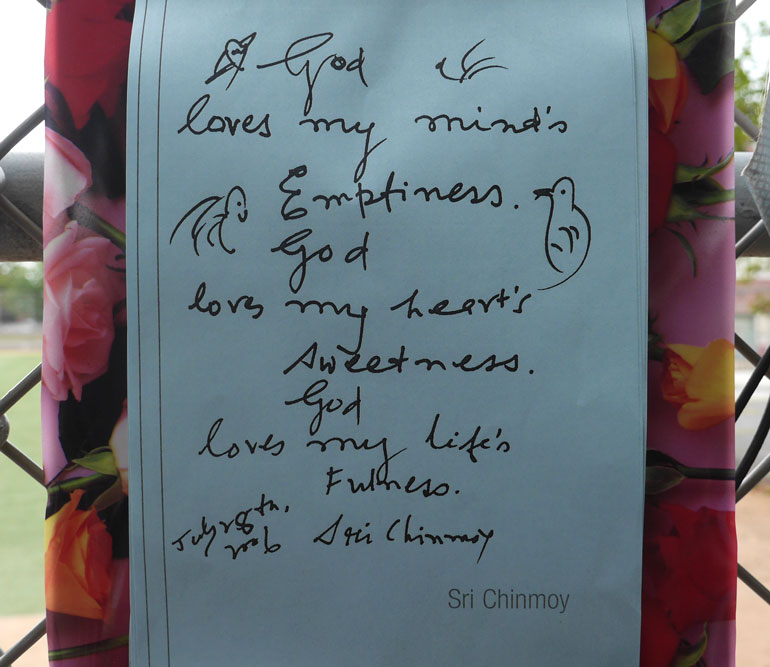 God
loves my mind's
Emptiness.
God
loves my heart's
sweetness.
God
loves my life's
Fulness.
July 28th,
2006
Sri Chinmoy
Sri Chinmoy